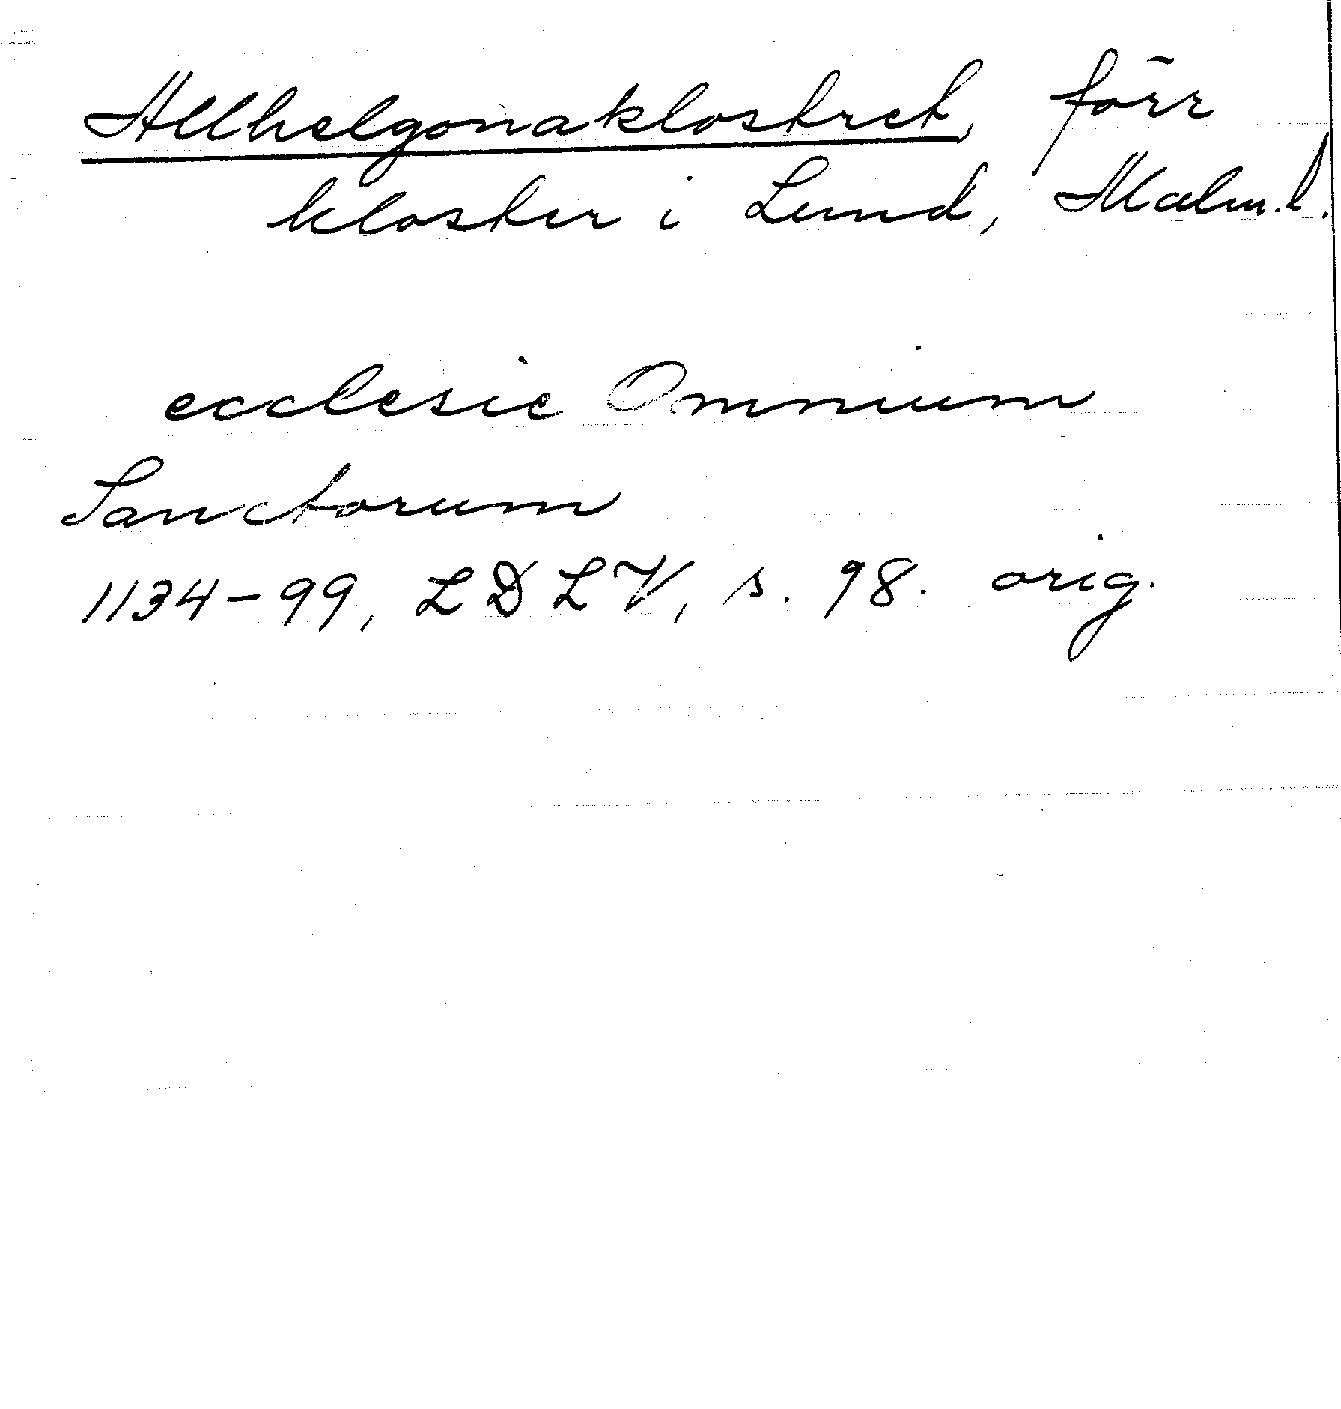 Allhelgonaklostret, förr
kloster i Lund, Malm.l.
ecclesie Omnium
Sanctorum
1134-99, LDLV, s. 98. orig.